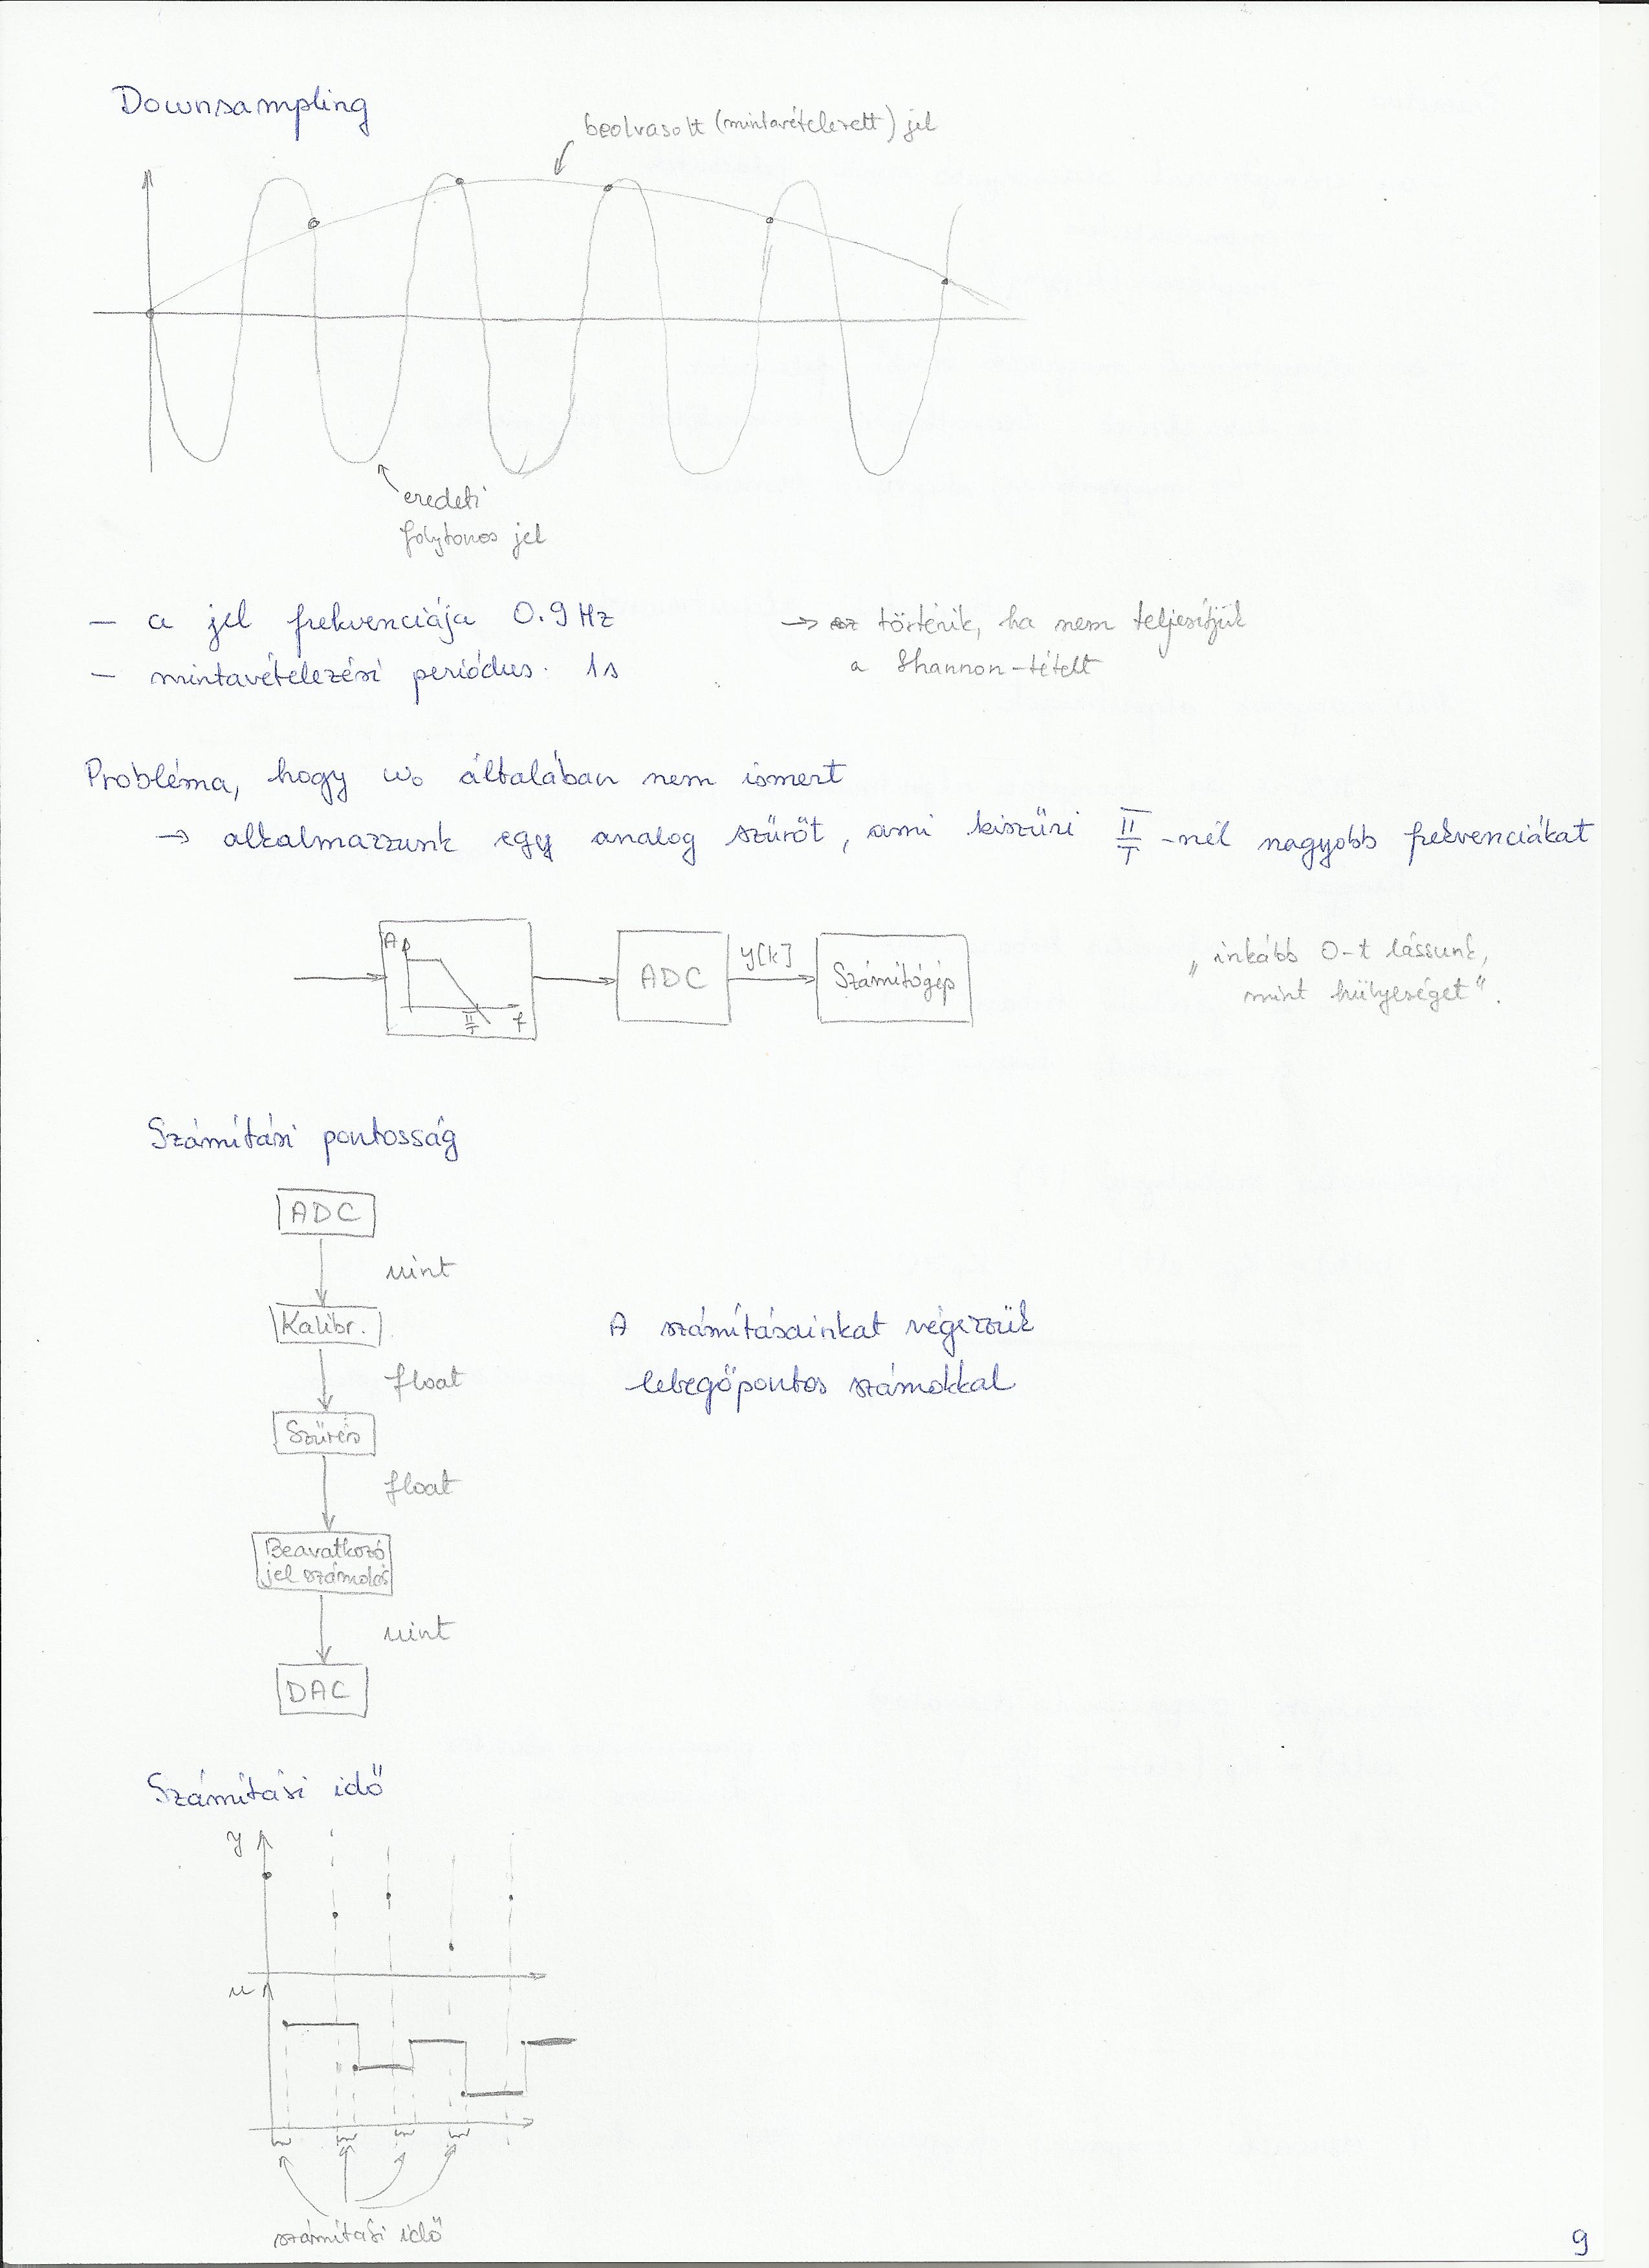 Downsampling
beolvasott (mintavételezett) jel
eredeti
folytonos jel
– a jel frekvenciája 0.9 Hz
– mintavételezési periódus: 1s
→ ez történik, ha nem teljesítjük
a Shannon-tételt
Probléma, hogy ω₀ általában nem ismert
→ alkalmazzunk egy analog szűrőt, ami kiszűri π/T -nél nagyobb frekvenciákat
A
π/T f
ADC
y[k]
Számítógép
„inkább 0-t lássunk,
mint hülyeséget".
Számítási pontosság
ADC
uint
Kalibr.
float
Szűrés
float
Beavatkozó
jel számolás
uint
DAC
A számításainkat végezzük
lebegőpontos számokkal
Számítási idő
y
u
számítási idő
9